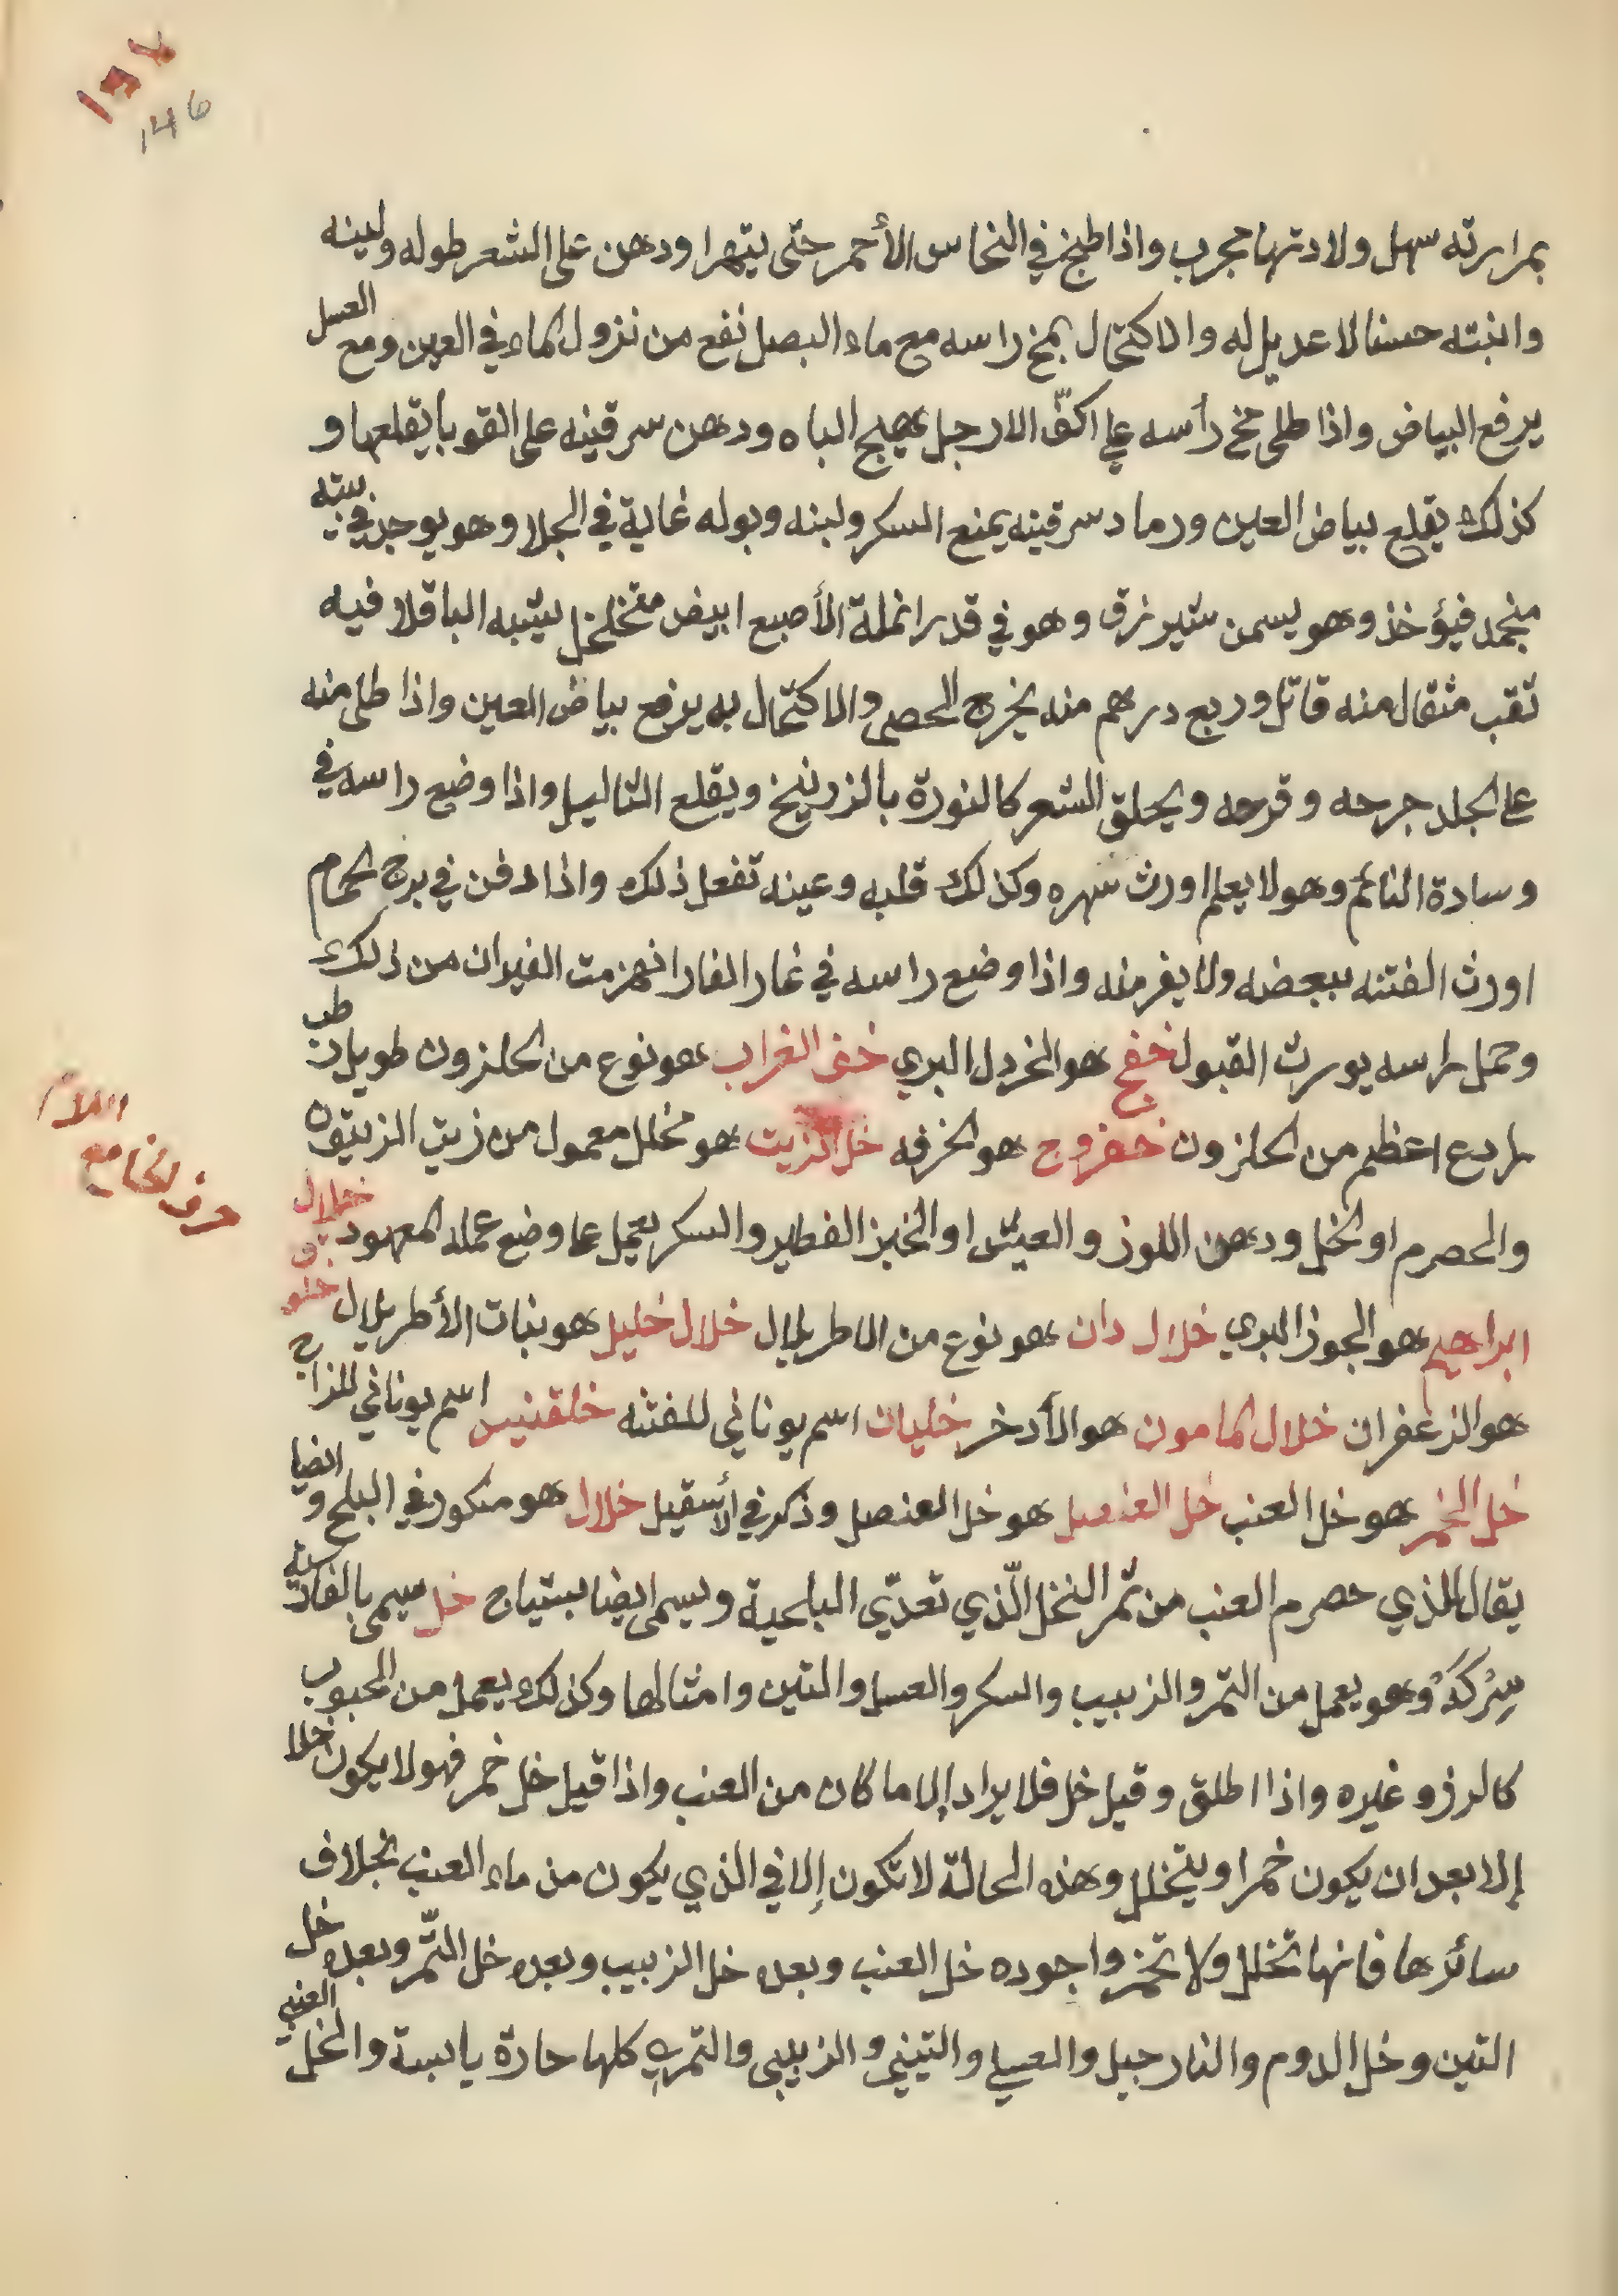 146
بمرارته سهل ولادتها مجرب واذا طبخ في النحاس الأحمر حتى يتهرا ودهن على الشعر طوله ولينه
وانبته حسنا لا عديل له والاكتحال بمخ راسه مع ماء البصل نفع من نزول الماء في العين ومع العسل
يرفع البياض واذا طلى مخ رأسه على اكفّ الارجل يهيج الباه ودهن سرقينه على القوبا يقلعها و
كذلك يقلع بياض العين ورماد سرقينه يمنع السكر ولبنه وبوله غاية في الجلا وهو يوجد في بيته
منجمد فيؤخذ وهو يسمن شير زق وهو في قدر انملة الأصبع ابيض متخلخل يشبه الباقلا فيه
ثقب مثقال منه قاتل وربع درهم منه يخرج الحصى والاكتحال به يرفع بياض العين واذا طلى منه
على الجلد جرحه وقرحه ويحلق الشعر كالنورة بالزرنيخ ويقلع الثاليل واذا وضع راسه في
وسادة النائم وهو لا يعلم اورث سهره وكذلك قلبه وعينه تفعل ذلك واذا دفن في برج الحمام
اورث الفتنه ببعضه ولا يفر منه واذا وضع راسه في غار الفار انهزمت الفيران من ذلك
وحمل راسه يورث القبول خفج هو الخردل البري خف الغراب هو نوع من الحلزون طويل
رادع اعظم من الحلزون خفروج هو الخرفه خل الزيت هو مخلل معمول من زيت الزيتون
والحصرم او الخل ودهن اللوز والعيش او الخبز الفطير والسكر يعمل على وضع عمله المعهود خلال
ابراهيم هو الجوز البري خلال دان هو نوع من الاطريلال خلال خليل هو بنات الأطريلال
هو الزعفران خلال المامون هو الأدخر خليان اسم يوناني للفثه خلقنيس اسم يوناني للزاج
خل الخمر هو خل العنب خل العنصل هو خل العنصل وذكر في الأسقيل خلال هو مذكور في البلح وايضا
يقال للذي حصرم العنب من ثمر النخل الّذي تعدّى البلحية ويسمى ايضا بستياح خل يسمى بالفارسية
سِركَهْ وهو يعمل من التمر والزبيب والسكر والعسل والتين وامثالها وكذلك يعمل من الحبوب
كالرز وغيره واذا اطلق وقيل خل فلا يراد إلا ما كان من العنب واذا قيل خل خمر فهو لا يكون خلا
إلا بعد ان يكون خمرا ويتخلل وهذه الحالة لا تكون إلا في الذي يكون من ماء العنب بخلاف
سائرها فانها تخلل ولا تخمر واجوده خل العنب وبعده خل الزبيب وبعده خل التّمر وبعده خل
التين وخل الدوم والنارجيل والعسلي والتيني والزبيبي والتمري كلها حارة يابسة والخل العنبي
حرف الخا مع
اللام